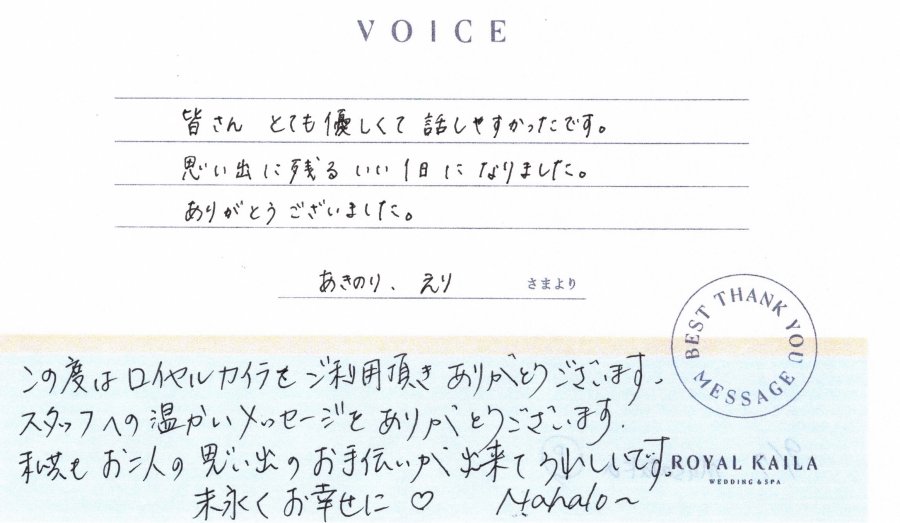 VOICE
皆さん とても優しくて 話しやすかったです。
思い出に残る いい1日になりました。
ありがとうございました。
あきのり、えり さまより
BEST THANK YOU MESSAGE
この度はロイヤルカイラをご利用頂きありがとうございます。
スタッフへの温かいメッセージもありがとうございます。
私共もお二人の思い出のお手伝いが出来てうれしいです。
ROYAL KAILA
WEDDING & SPA
末永くお幸せに♡ Mahalo~